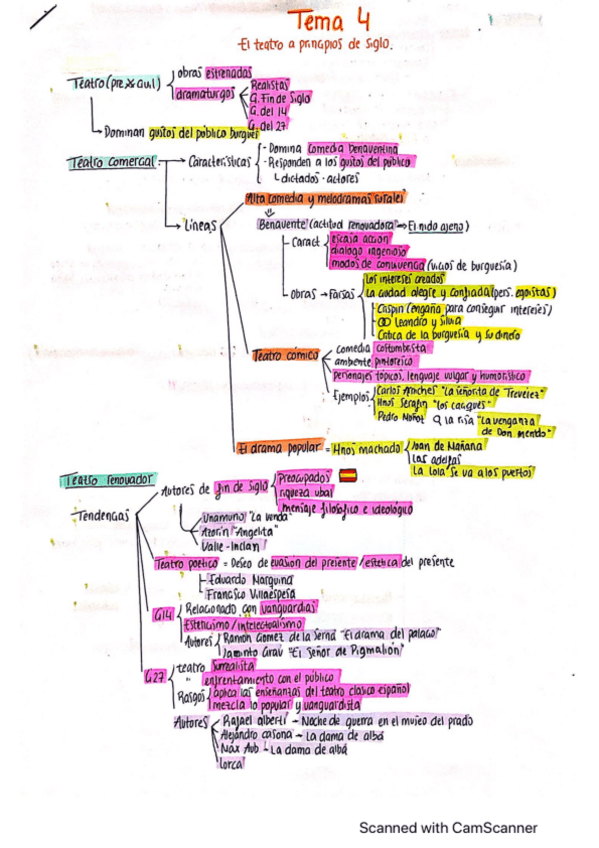 Tema 4
El teatro a principios de siglo.
Teatro (pre
obras estrenadas
dramaturgos
Realistas
G. Fin de Siglo
G. del 14
G. del 27
Dominan gustos del público burgués
Teatro comercial
Características
- Domina comedia benaventina
- Responden a los gustos del público
dictados - actores
Líneas
Alta comedia y melodramas rurales
Benavente (actitud renovadora → El nido ajeno)
Caract
escasa acción
diálogo ingenioso
modos de convivencia (vicios de burguesía)
Obras → Farsas
Los intereses creados
La ciudad alegre y confiada (pers. egoístas)
Crispín (engaña para conseguir intereses)
Leandro y Silvia
Crítica de la burguesía y su dinero
Teatro cómico
comedia costumbrista
ambiente pintoresco
personajes típicos, lenguaje vulgar y humorístico
Ejemplos
Carlos Arniches "La señorita de Trevélez"
Hnos Serafín "Los
Pedro Muñoz a la risa "La venganza
de Don Mendo"
El drama popular = Hnos machado
Juan de Mañana
Las adelfas
La Lola se va a los puertos
Teatro renovador
Autores de fin de siglo
Preocupados
riqueza
mensaje filosófico e ideológico
Tendencias
Unamuno "La venda"
Azorín "Angelita"
Valle-Inclán
Teatro poético = Deseo de evasión del presente / estética del presente
Eduardo Marquina
Francisco Villaespesa
G14
Relacionado con vanguardias
Esteticismo / intelectualismo
Autores
Ramón Gomez de la Serna "El drama del palacio"
Jacinto Grau "El Señor de Pigmalión"
G27
teatro surrealista
" enfrentamiento con el público
Rasgos
aplica las enseñanzas del teatro clásico español
mezcla lo popular y vanguardista
Autores
Rafael alberti - Noche de guerra en el museo del prado
Alejandro casona - La dama de alba
Max Aub - La dama de alba
Lorca
Scanned with CamScanner